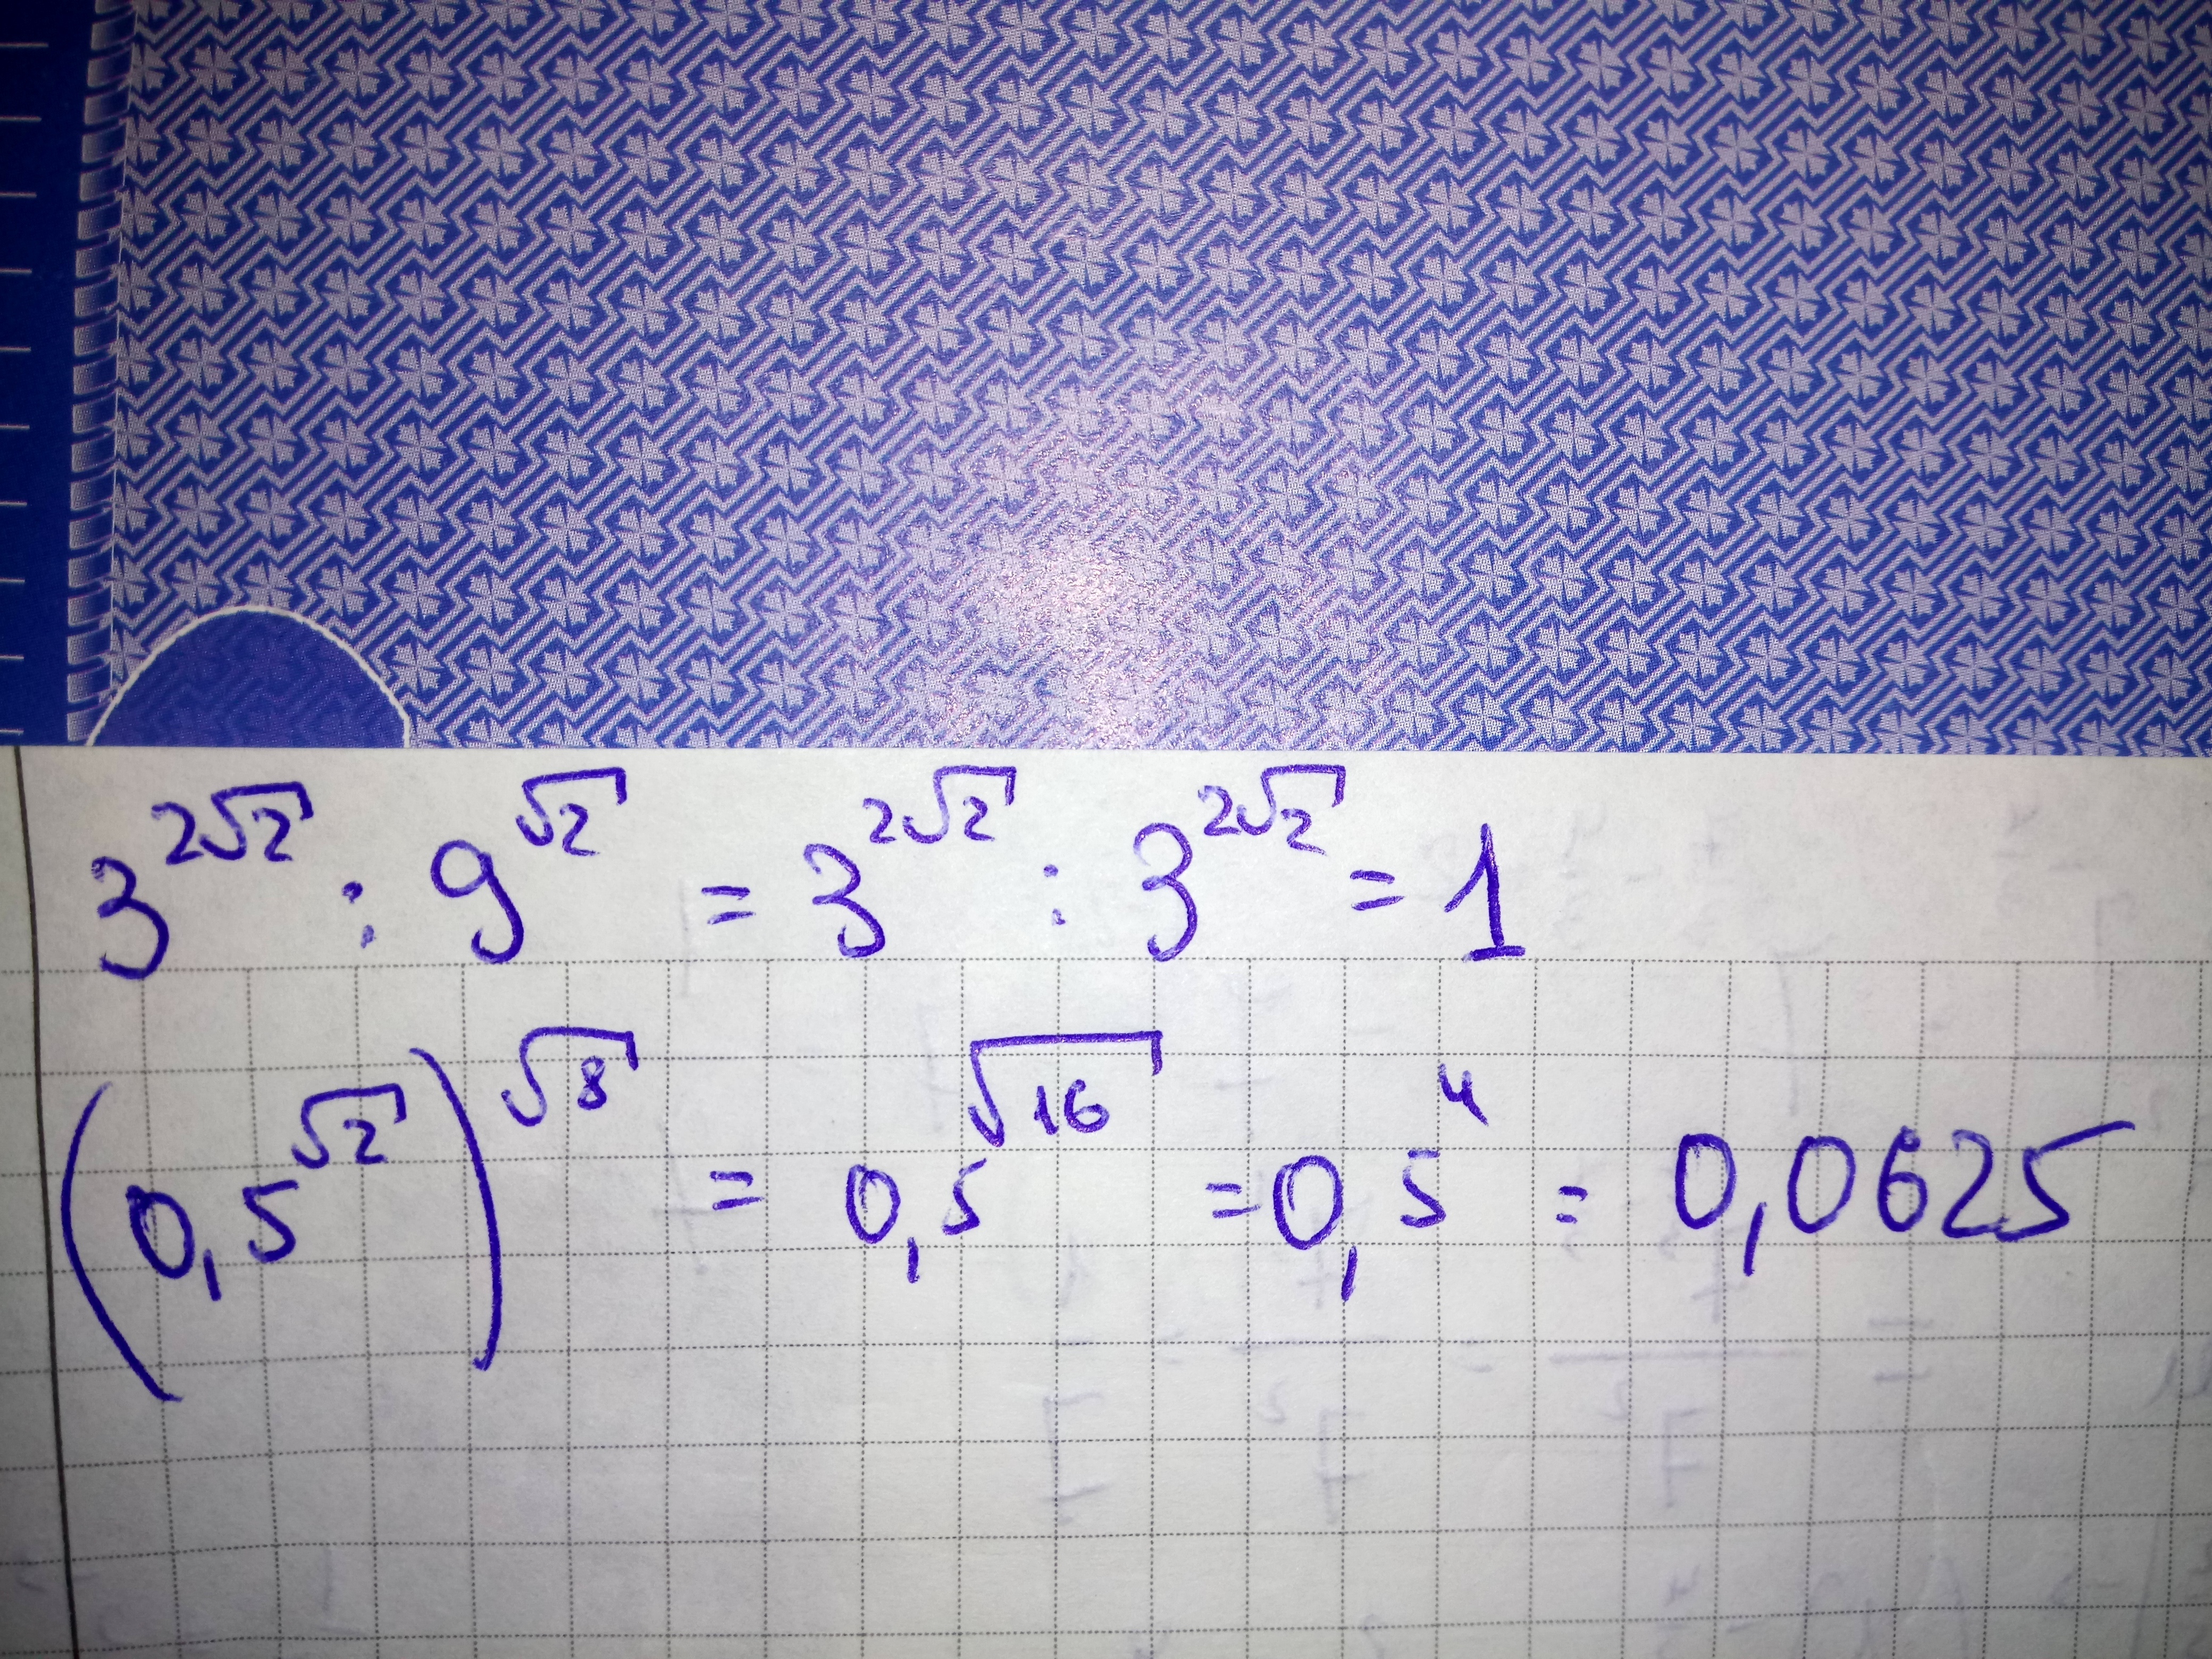 3^{2√2} : 9^{√2} = 3^{2√2} : 3^{2√2} = 1
(0,5^{√2})^{√8} = 0,5^{√16} = 0,5^4 = 0,0625